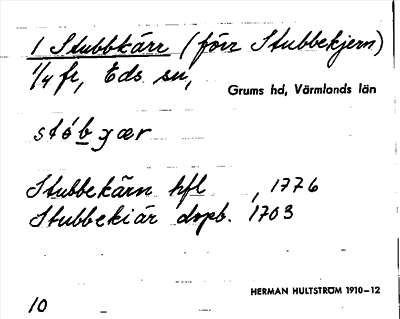 1 Stubbkärr (förr Stubbekjern)
1/4 fr, Eds sn,
Grums hd, Värmlands län
stób y̨ær
Stubbekärn hfl , 1776
Stubbekiär dopb. 1703
HERMAN HULTSTRÖM 1910–12
10